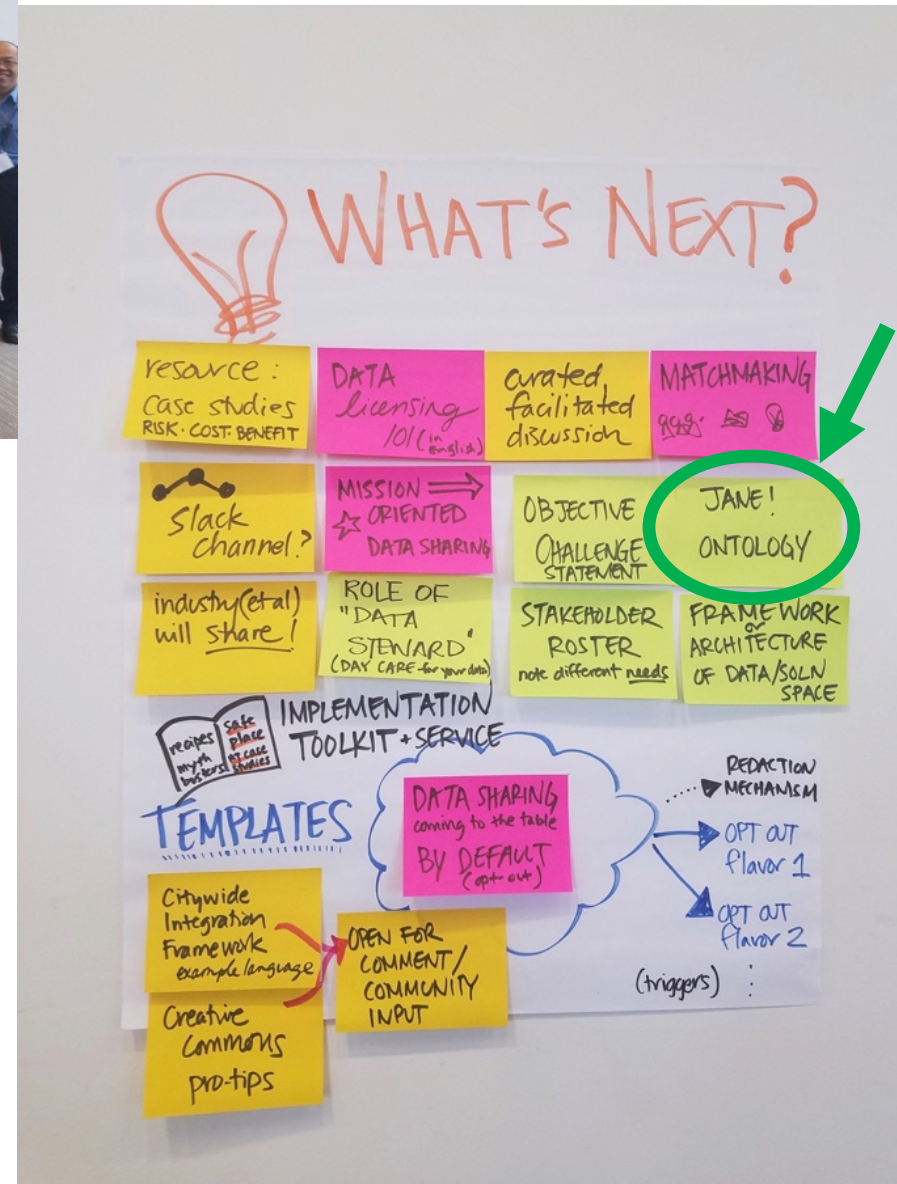 WHAT'S NEXT?
resource:
case studies
RISK·COST·BENEFIT
DATA
licensing
101 (in
English)
curated,
facilitated
discussion
MATCHMAKING
Slack
channel?
MISSION
ORIENTED
DATA SHARING
OBJECTIVE
CHALLENGE
STATEMENT
JANE!
ONTOLOGY
industry (et al)
will share!
ROLE OF
"DATA
STEWARD"
(DAY CARE for your data)
STAKEHOLDER
ROSTER
note different needs
FRAMEWORK
or
ARCHITECTURE
OF DATA/SOLN
SPACE
recipes
myth
busters!
safe
place
case
studies
IMPLEMENTATION
TOOLKIT + SERVICE
TEMPLATES
DATA SHARING
coming to the table
BY DEFAULT
(opt-out)
REDACTION
MECHANISM
OPT OUT
flavor 1
OPT OUT
flavor 2
(triggers)
Citywide
Integration
Framework
example language
OPEN FOR
COMMENT/
COMMUNITY
INPUT
Creative
Commons
pro-tips